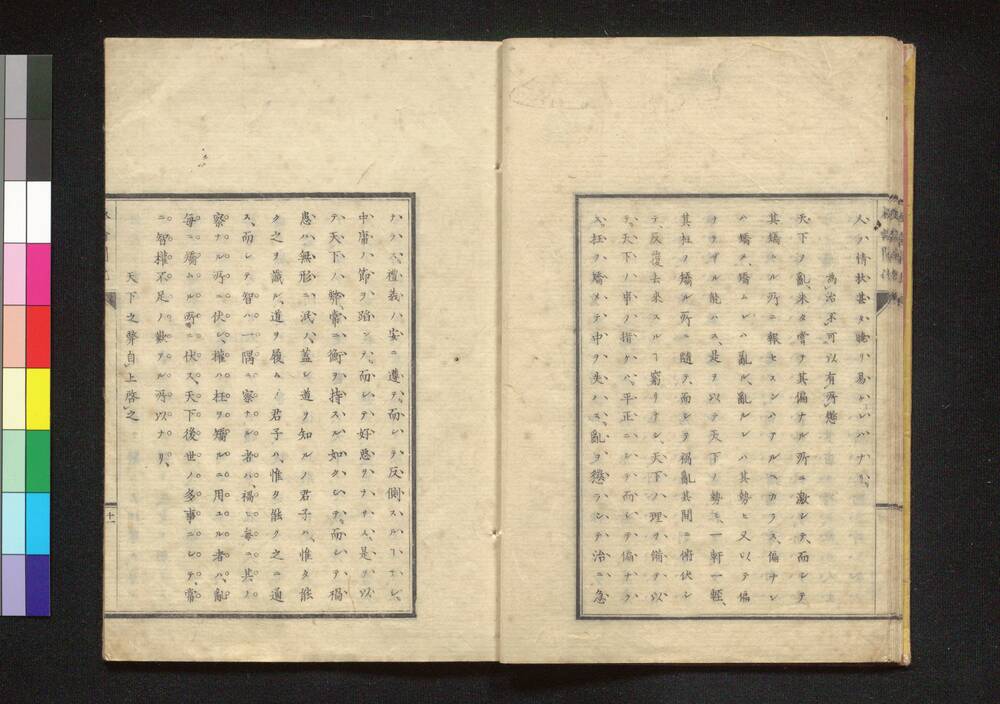 人ノ情狀甚タ睹リ易ケレハナリ、
爲治不可以有所懲
天下ヲ亂、未タ嘗テ其偏ナル所ニ激シテ、而シテ
其矯ムル所ニ報セスンハアルヘカラス、偏ナレ
ハ矯メ、矯ムレハ亂ル、亂ルレハ其勢ヒ又以テ偏
ナラザル能ハス、是ヲ以テ天下ノ勢ヒ、一軒一輊、
其枉ノ矯ル所ニ隨テ、而シテ禍亂其間ニ俯伏シ
テ、反復去來スルヿ窮リナシ、天下ハ理ヲ備テ以
テ、天下ハ事ヲ揩ケハ、平正ニシテ而シテ偏ナク
、枉ヲ矯メテ中ヲ失ハス、亂ヲ懲ラシテ治ニ急
ナラス、禮義ハ安ニ遵テ、而シテ反側スルヿナシ、
中庸ハ節ヲ蹈ンテ、而シテ好惡ヲナサス、是ヲ以
テ、天下ハ常ニ衡ヲ持スル如クシテ、而シテ禍
患ハ無形ニ泯ハ、蓋シ道ヲ知ルノ君子ハ、惟タ能
ク之ヲ識ル、道ヲ履ムノ君子ハ、惟タ能ク之ニ通
ス、而シテ智ハ一隅ニ察ナル者ハ、禍ヒ毎ニ其ノ
察ナル所ニ伏シ、權ハ枉ヲ矯ルニ用ユル者ハ、亂
毎ニ矯ムル所ニ伏ス、天下後世ノ多事ニシテ、常
ニ智權不足ノ歎アル所以ナリ、
天下之弊自上啓之
十一